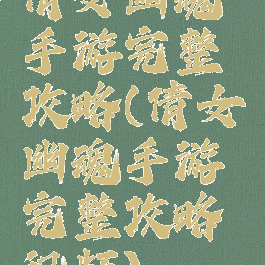 倩女幽魂
手游完整
攻略(倩女
幽魂手游
完整攻略
视频)